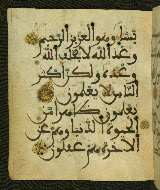 يشاء وهو العزيز الرحيم
وعد الله لا يخلف الله
وعده ولكن اكثر
الناس لا يعلمون
يعلمون ظهرا من
الحيوة الدنيا وهم عن
الاخرة هم غفلون